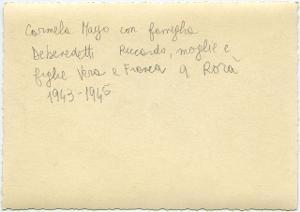 Carmela Mayo con famiglia
Debenedetti Riccardo, moglie e
figlie Vera e Franca a Rorà
1943-1945